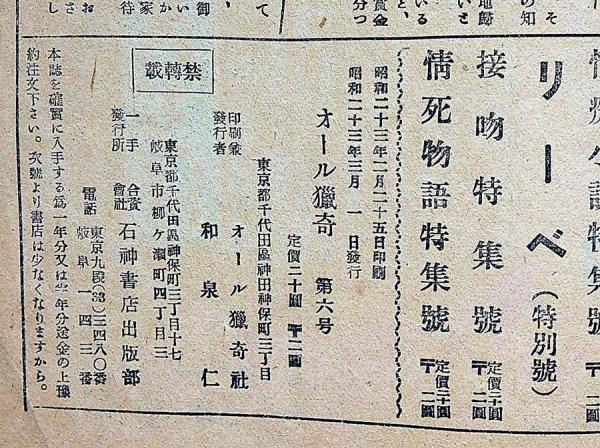 そ
の知
地歸
いさ
てい
る
と、
賞金
分つ
て
御
家
待
情痴小說特集號
リーベ（特別號）
接吻特集號 定價二十圓 〒二圓
情死物語特集號 定價二十圓 〒二圓
昭和二十三年二月二十五日印刷
昭和二十三年三月　一　日發行
オール獵奇　第六号
定價二十圓　〒二圓
東京都千代田區神田神保町三丁目
オール獵奇社
印刷兼
發行者　和泉　仁
東京都千代田區神保町三丁目十七
岐阜市柳ヶ瀬町四丁目三
一手
發行所　合資會社　石神書店出版部
電話　東京九段（33）三四八〇番
岐阜一一四三番
禁轉載
本誌を確實に入手する爲一年分又は半年分送金の上豫
約注文下さい。次號より書店は少なくなりますから。